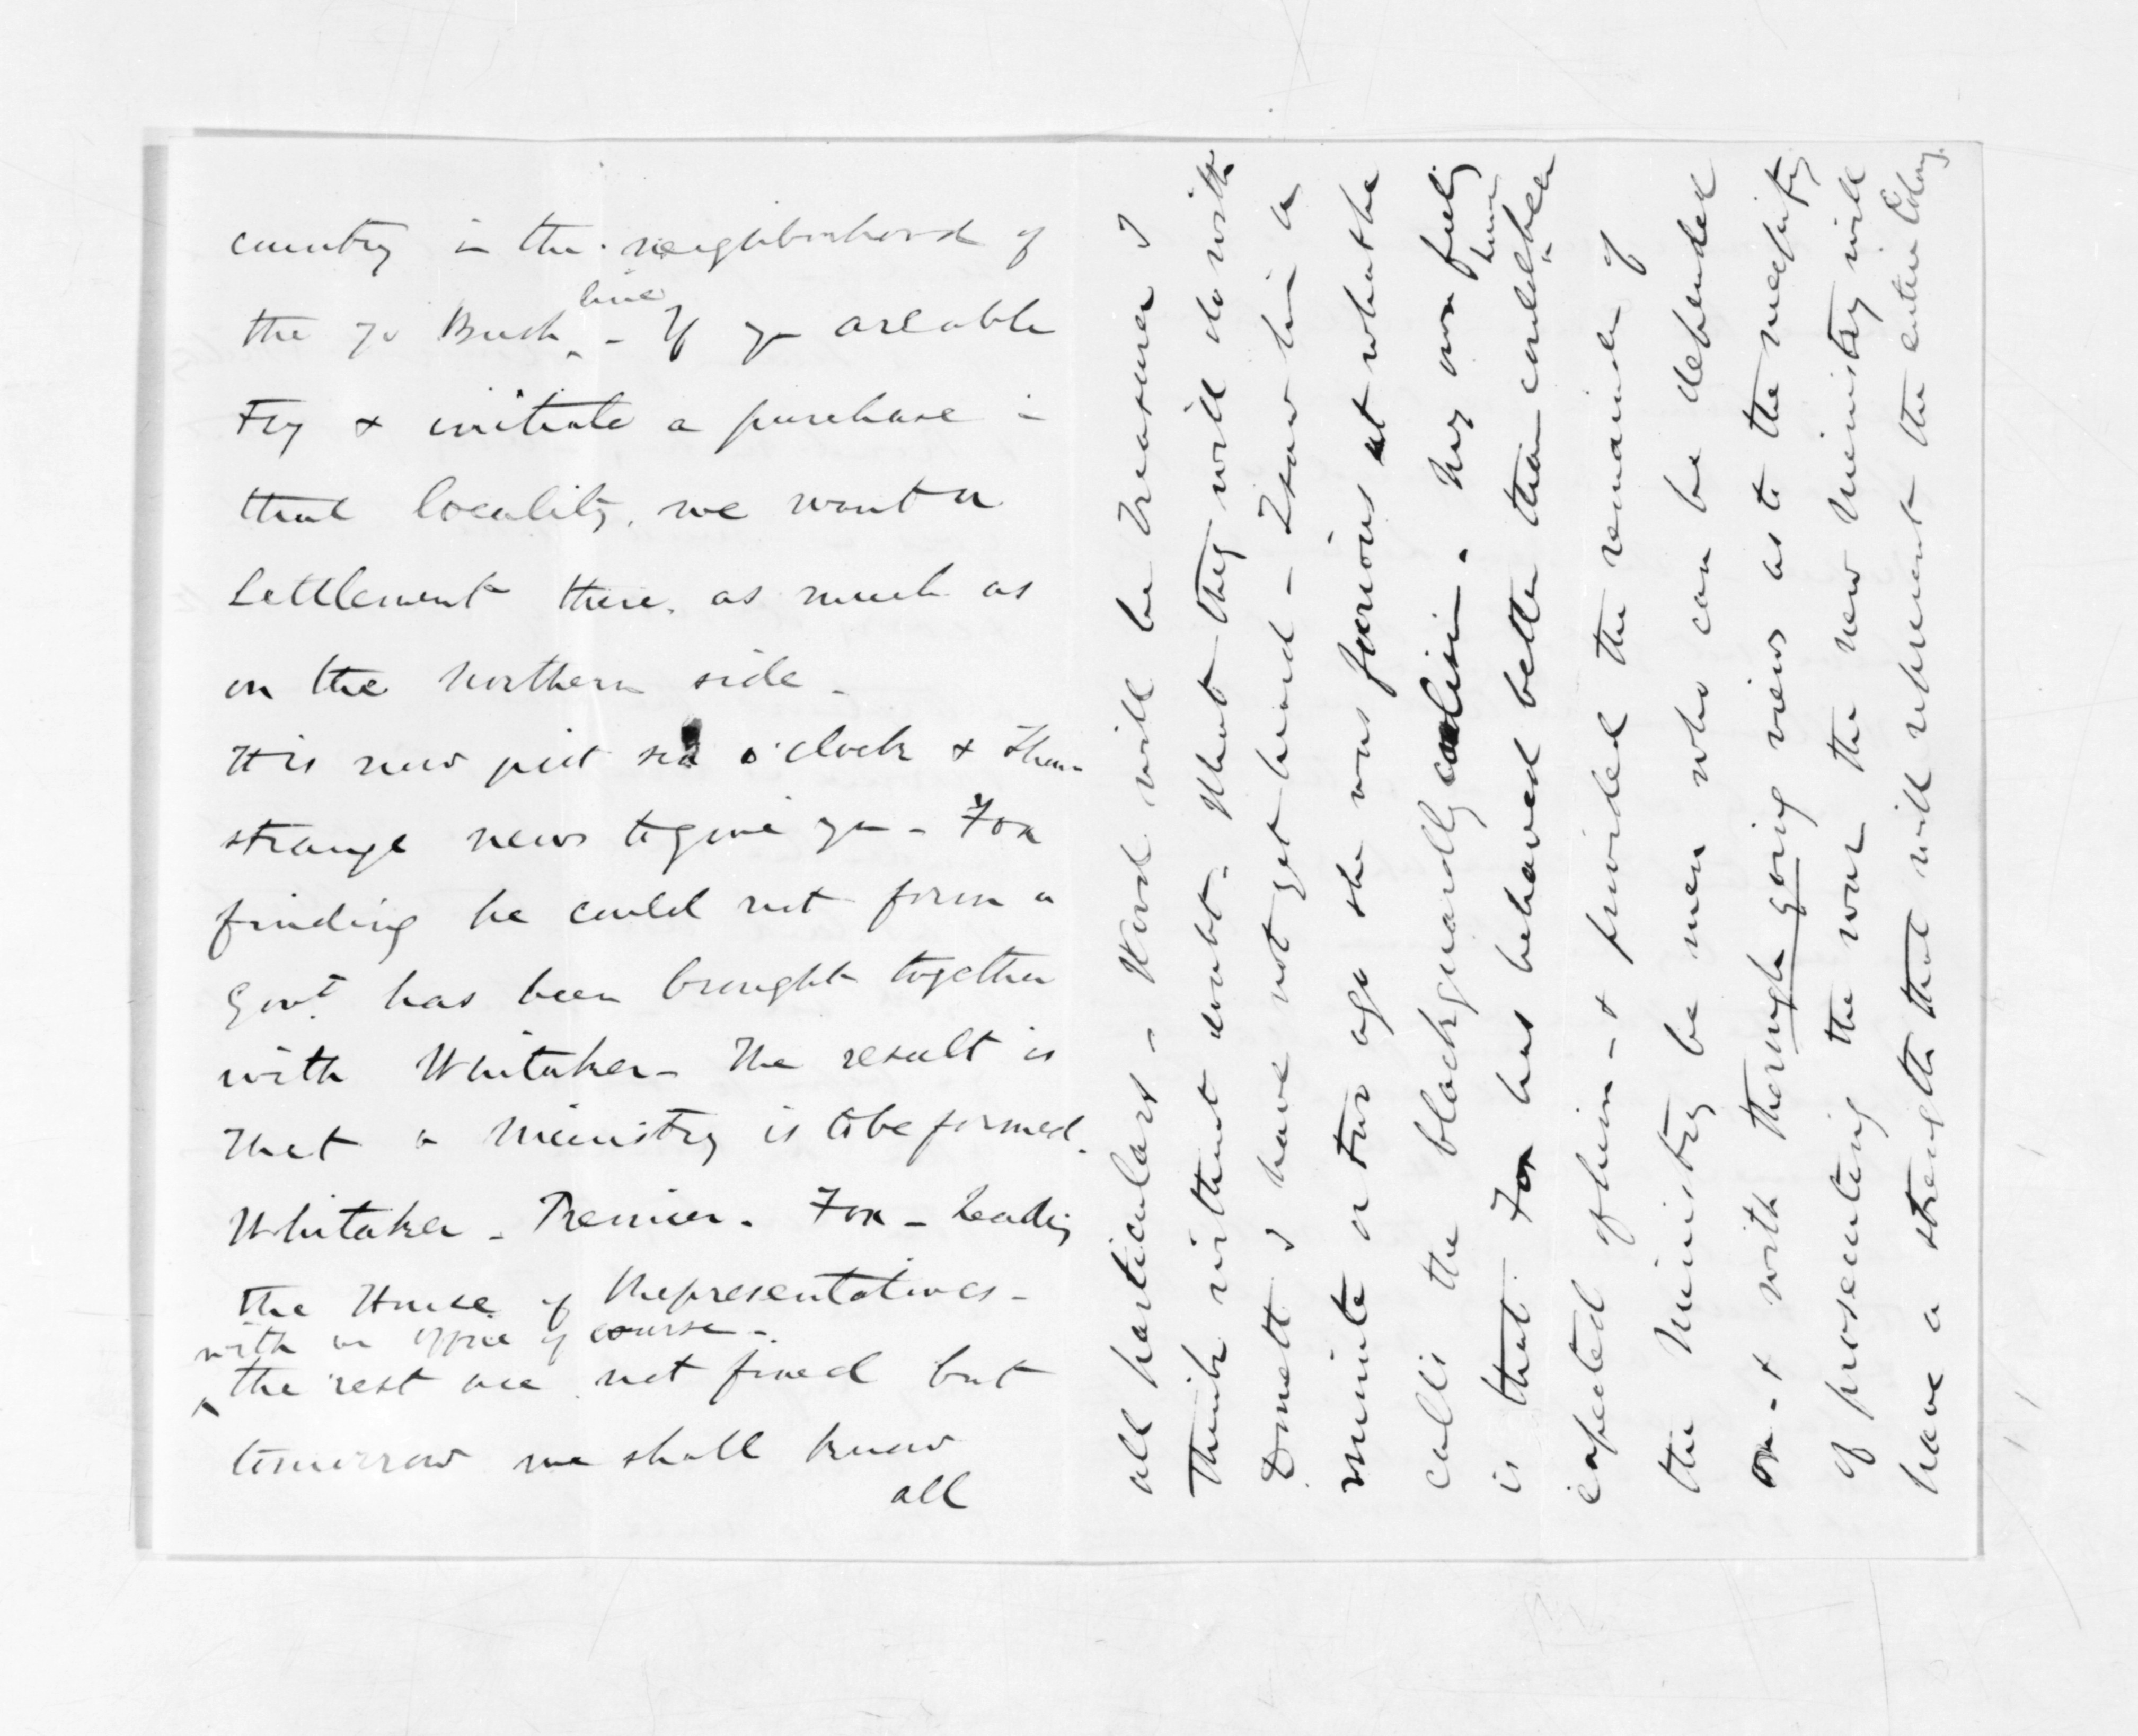 country in the neighborhood of
the 70 Bush line - If yu are able
try & initiate a purchase in
that locality, we want a
Settlement there, as much as
on the northern side -
It is now past six o'clock & I have
strange news to give yu - Fox
finding he could not form a
Govt. has been brought together
with Whitaker - The result is
that a Ministry is to be formed.
Whitaker - Premier. Fox - Leading
the House of Representatives -
with an office of course -
the rest are not fixed but
tomorrow we shall know
all
all particulars - Wood will be Treasurer I
think without doubt. What they will do with
Domett I have not yet heard - I saw him a
minute or two ago & he was furious at what he
calls the blackguardly coalition. My own feeling
is that Fox has behaved better than could have been
expected of him - & provided the remainder of
the Ministry be men who can be depended
on - & with thorough going views as to the necessity
of prosecuting the war the new Ministry will
have a strength that will represent the entire Colony.